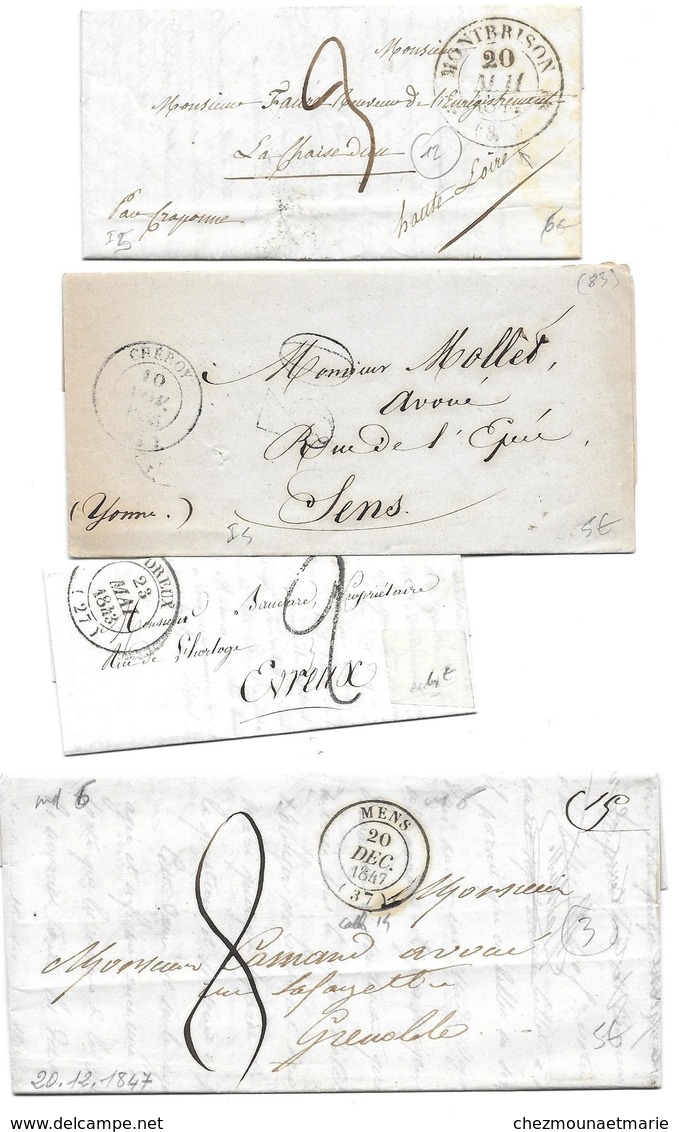 Monsieur
MONTBRISON
20
MAI
3
Monsieur Faure Receveur de l'Enregistrement
La Chaise dieu
12
haute Loire
Par Craponne
IS
6€
(83)
CHÉROY
10
NOV.
Monsieur Mollet,
avoué
Rue de l'Epée
Sens.
(Yonne.)
IS
5€
DREUX
23
MAI
1843
(27)
2
Monsieur
Propriétaire
Rue de l'horloge
Evreux
md 6
MENS
20
DEC.
1847
(37)
15
8
Monsieur
3
Monsieur Camand avoué
rue Lafayette
Grenoble
5€
20.12.1847
chezmounaetmarie.com